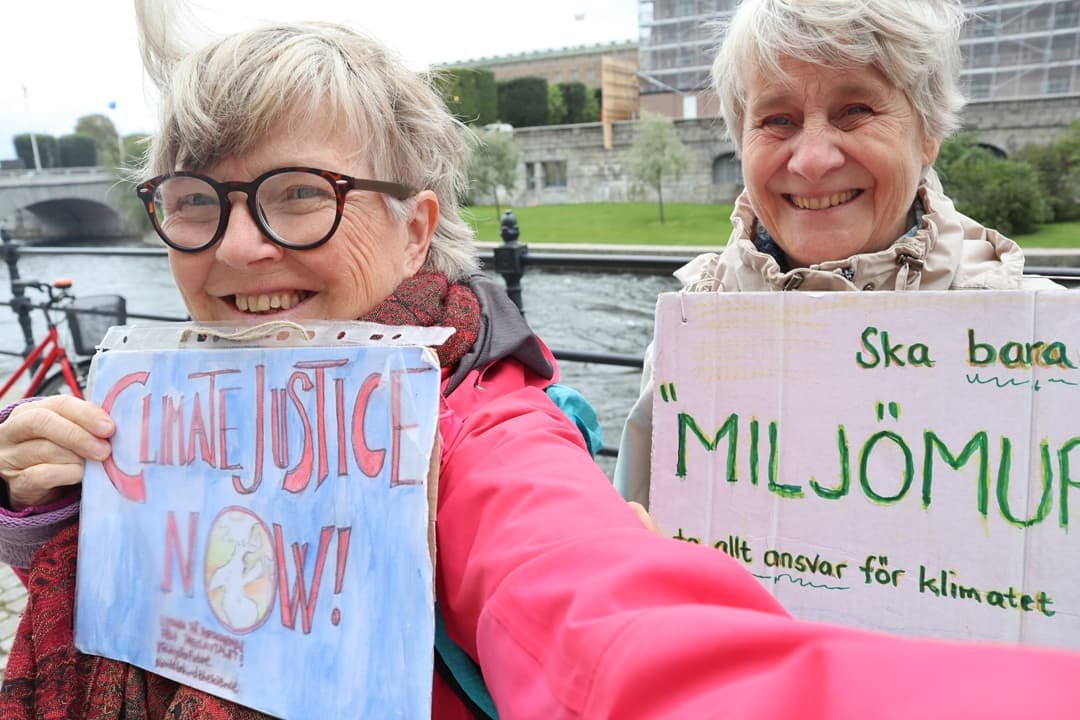 CLIMATE JUSTICE
NOW!
Ska bara
"MILJÖMUP
ta allt ansvar för klimatet